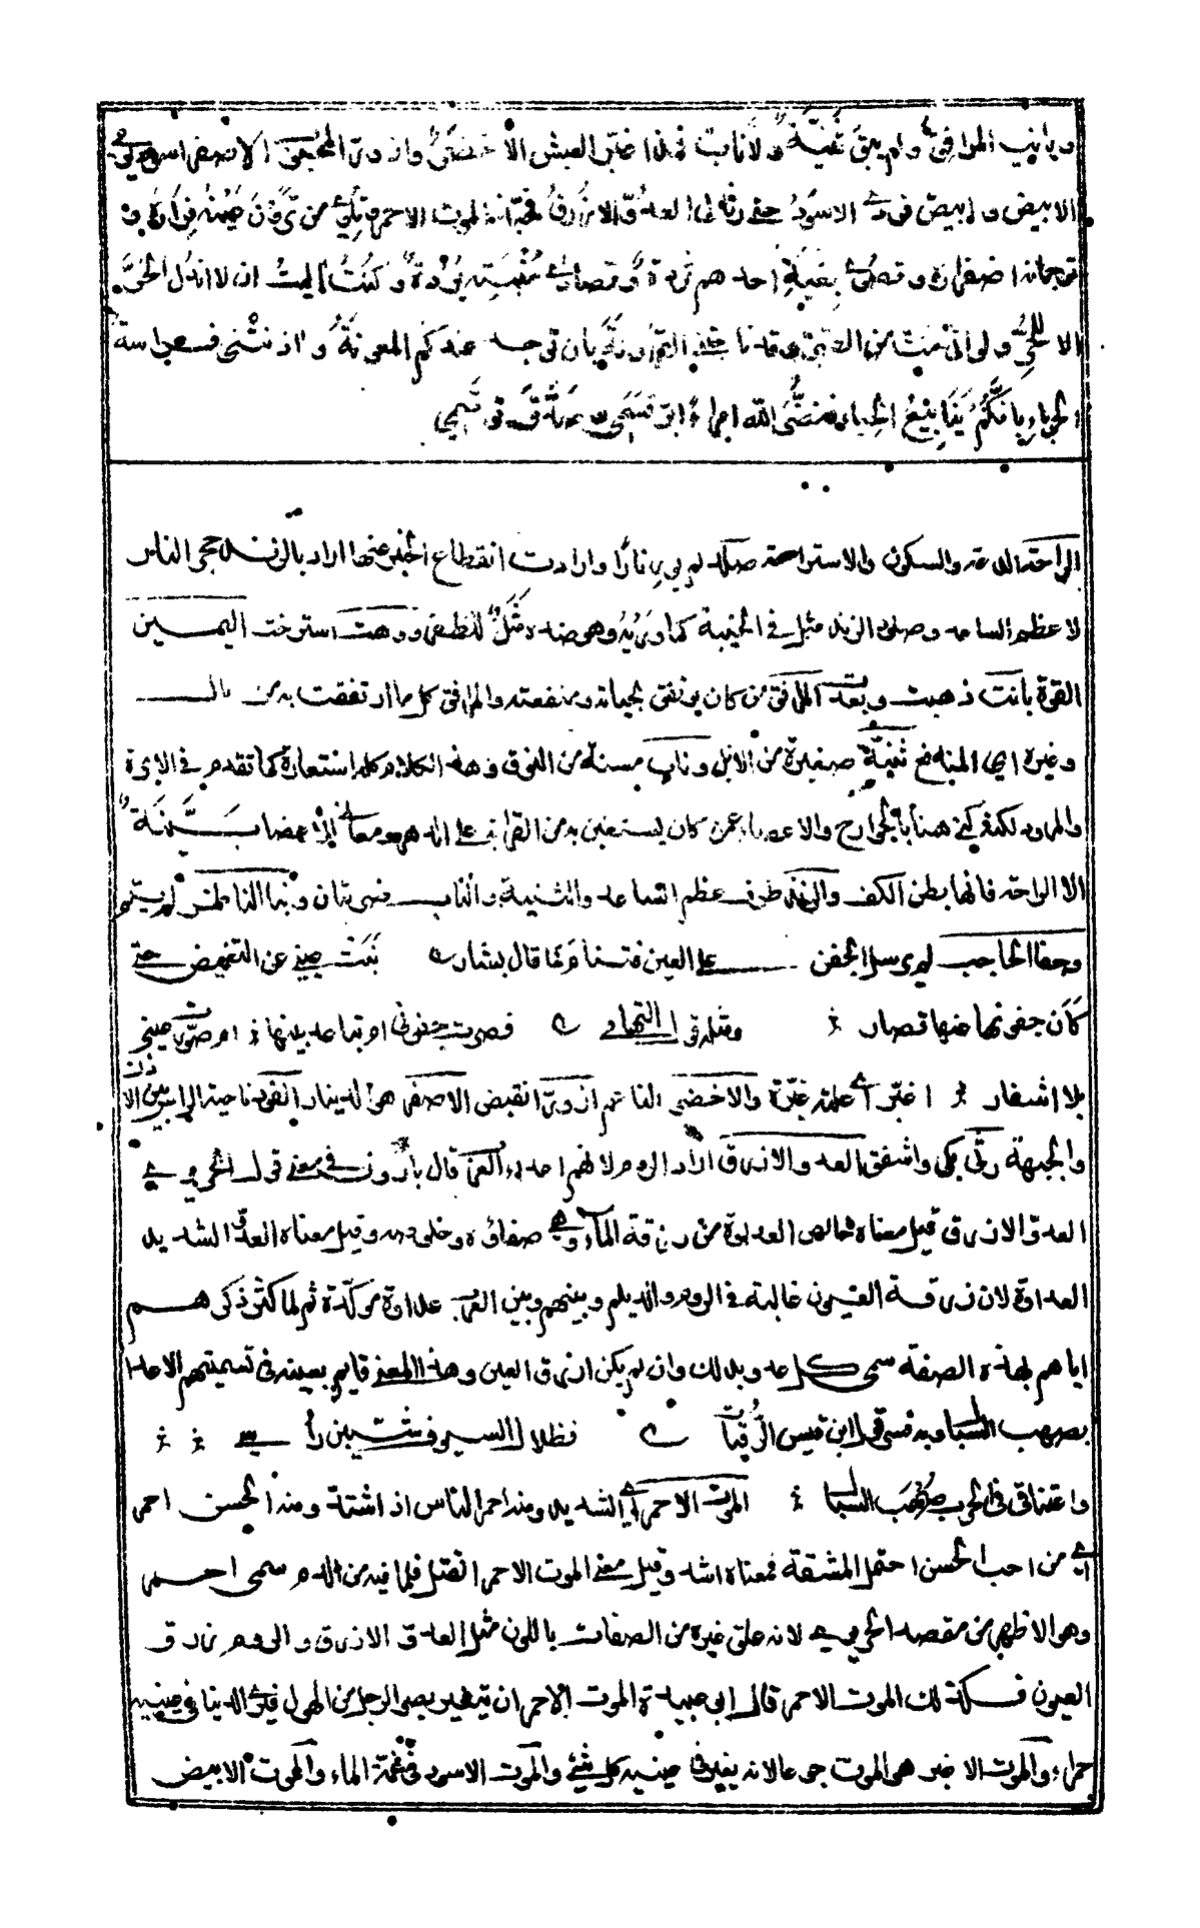 وبانت المرافق ولم يبق لنا ثنية ولا ناب فمذ اغبر العيش الأخضر وازور المحبوب الأصفر اسود يومي
الأبيض وابيض فودي الأسود حتى رثى لي العدو الأزرق فحبذا الموت الأحمر وتلوي من ترون عينه فراره و
ترجمانه اصفراره وقصوى بغية أحدهم ثردة وقصارى أمنيته بردة وكنت آليت ان لا ابذل الحر
الا للحر ولو انى مت من الضر وقد ناجتني القرونة بان توجد عندكم المعونة واذنتني فراسة
الحوباء بانكم ينابيع الحباء فنضر الله امرأ ابر قسمي وصدق توسمي
الراحة الدعة والسكون والاستراحة صلد لم يور نارا وارادت انقطاع الخير عنها اراد بالزند حجر النار
لا عظم الساعد وصلود الزند مثل في الخيبة كما وريه وهو ضده مثل للظفر ووهت استرخت اليمين
القوة بانت ذهبت وبعدت المرافق من كان يرتفق بحياته ومنفعته والمرافق كل ما ارتفقت به من مال
وغيره ثنية صغيرة من الابل وناب مسنة من النوق وهذه الكلام كله استعارة كما تقدم في الابرة
والمرود لكنه كنى هنا بالجوارح والاعضاء عمن كان يستعين به من القرابة على الدهر ومعانى الأعضاء بينة
الا الراحة فانها بطن الكف والزند طرف عظم الساعد والثنية والناب ضرستان ونبا الناظر لم يستقر
وجفا الحاجب لم يرسل الجفن على العين فتنام ومما قال بشار نبت عيني عن التغميض حتى
كان جفونها عنها قصار ومثله قول التهامي قصرت جفوني ام تباعد بينها ام صورت عيني
بلا اشفار اغبر أي علته غبرة والاخضر الناعم ازور انقبض الاصفر هو الدينار الفود ناحية الراس بين الاذن
والجبهة رثى بكى واشفق العدو الازرق اراد الروم لانهم اعداء العرب قال في معنى قول الحريري
العدو الازرق قيل معناه خالص العداوة من زرقة الماء وهي صفاؤه وخلوصه وقيل معناه العدو الشديد
العداوة لان زرقة العيون غالبة في الروم والديلم وبينهم وبين العرب عداوة مؤكدة ثم لما كثر ذكرهم
اياهم بهذه الصفة سمي كل عدو بذلك وان لم يكن ازرق العين وهذا المعنى قايم بعينه في تسميتهم الاعدا
بصهب السبال وبه فسر قول ابن قيس الرقيات فظلال السيوف شيبن رأسي
واعتناقي في الحرب صهب السبال الموت الاحمر أي الشديد ومنه احمر الناس اذا اشتد ومنه الحسن احمر
أي من احب الحسن احتمل المشقة فمعناه اشد وقيل معنى الموت الاحمر القتل فلما فيه من الدم سمي احمر
وهو الاظهر من مقصد الحريري لانه على غيره من الصفات باللون مثل العدو الازرق والروم زرق
العيون فكذلك الموت الاحمر قال ابي عبيدة الموت الاحمر ان يتغير بصر الرجل من الهول فيرى الدنيا في عينيه
حمراء والموت الاغبر هو الموت جوعا لانه يغبر في عينيه كل شيء والموت الاسود في غمة الماء والموت الابيض